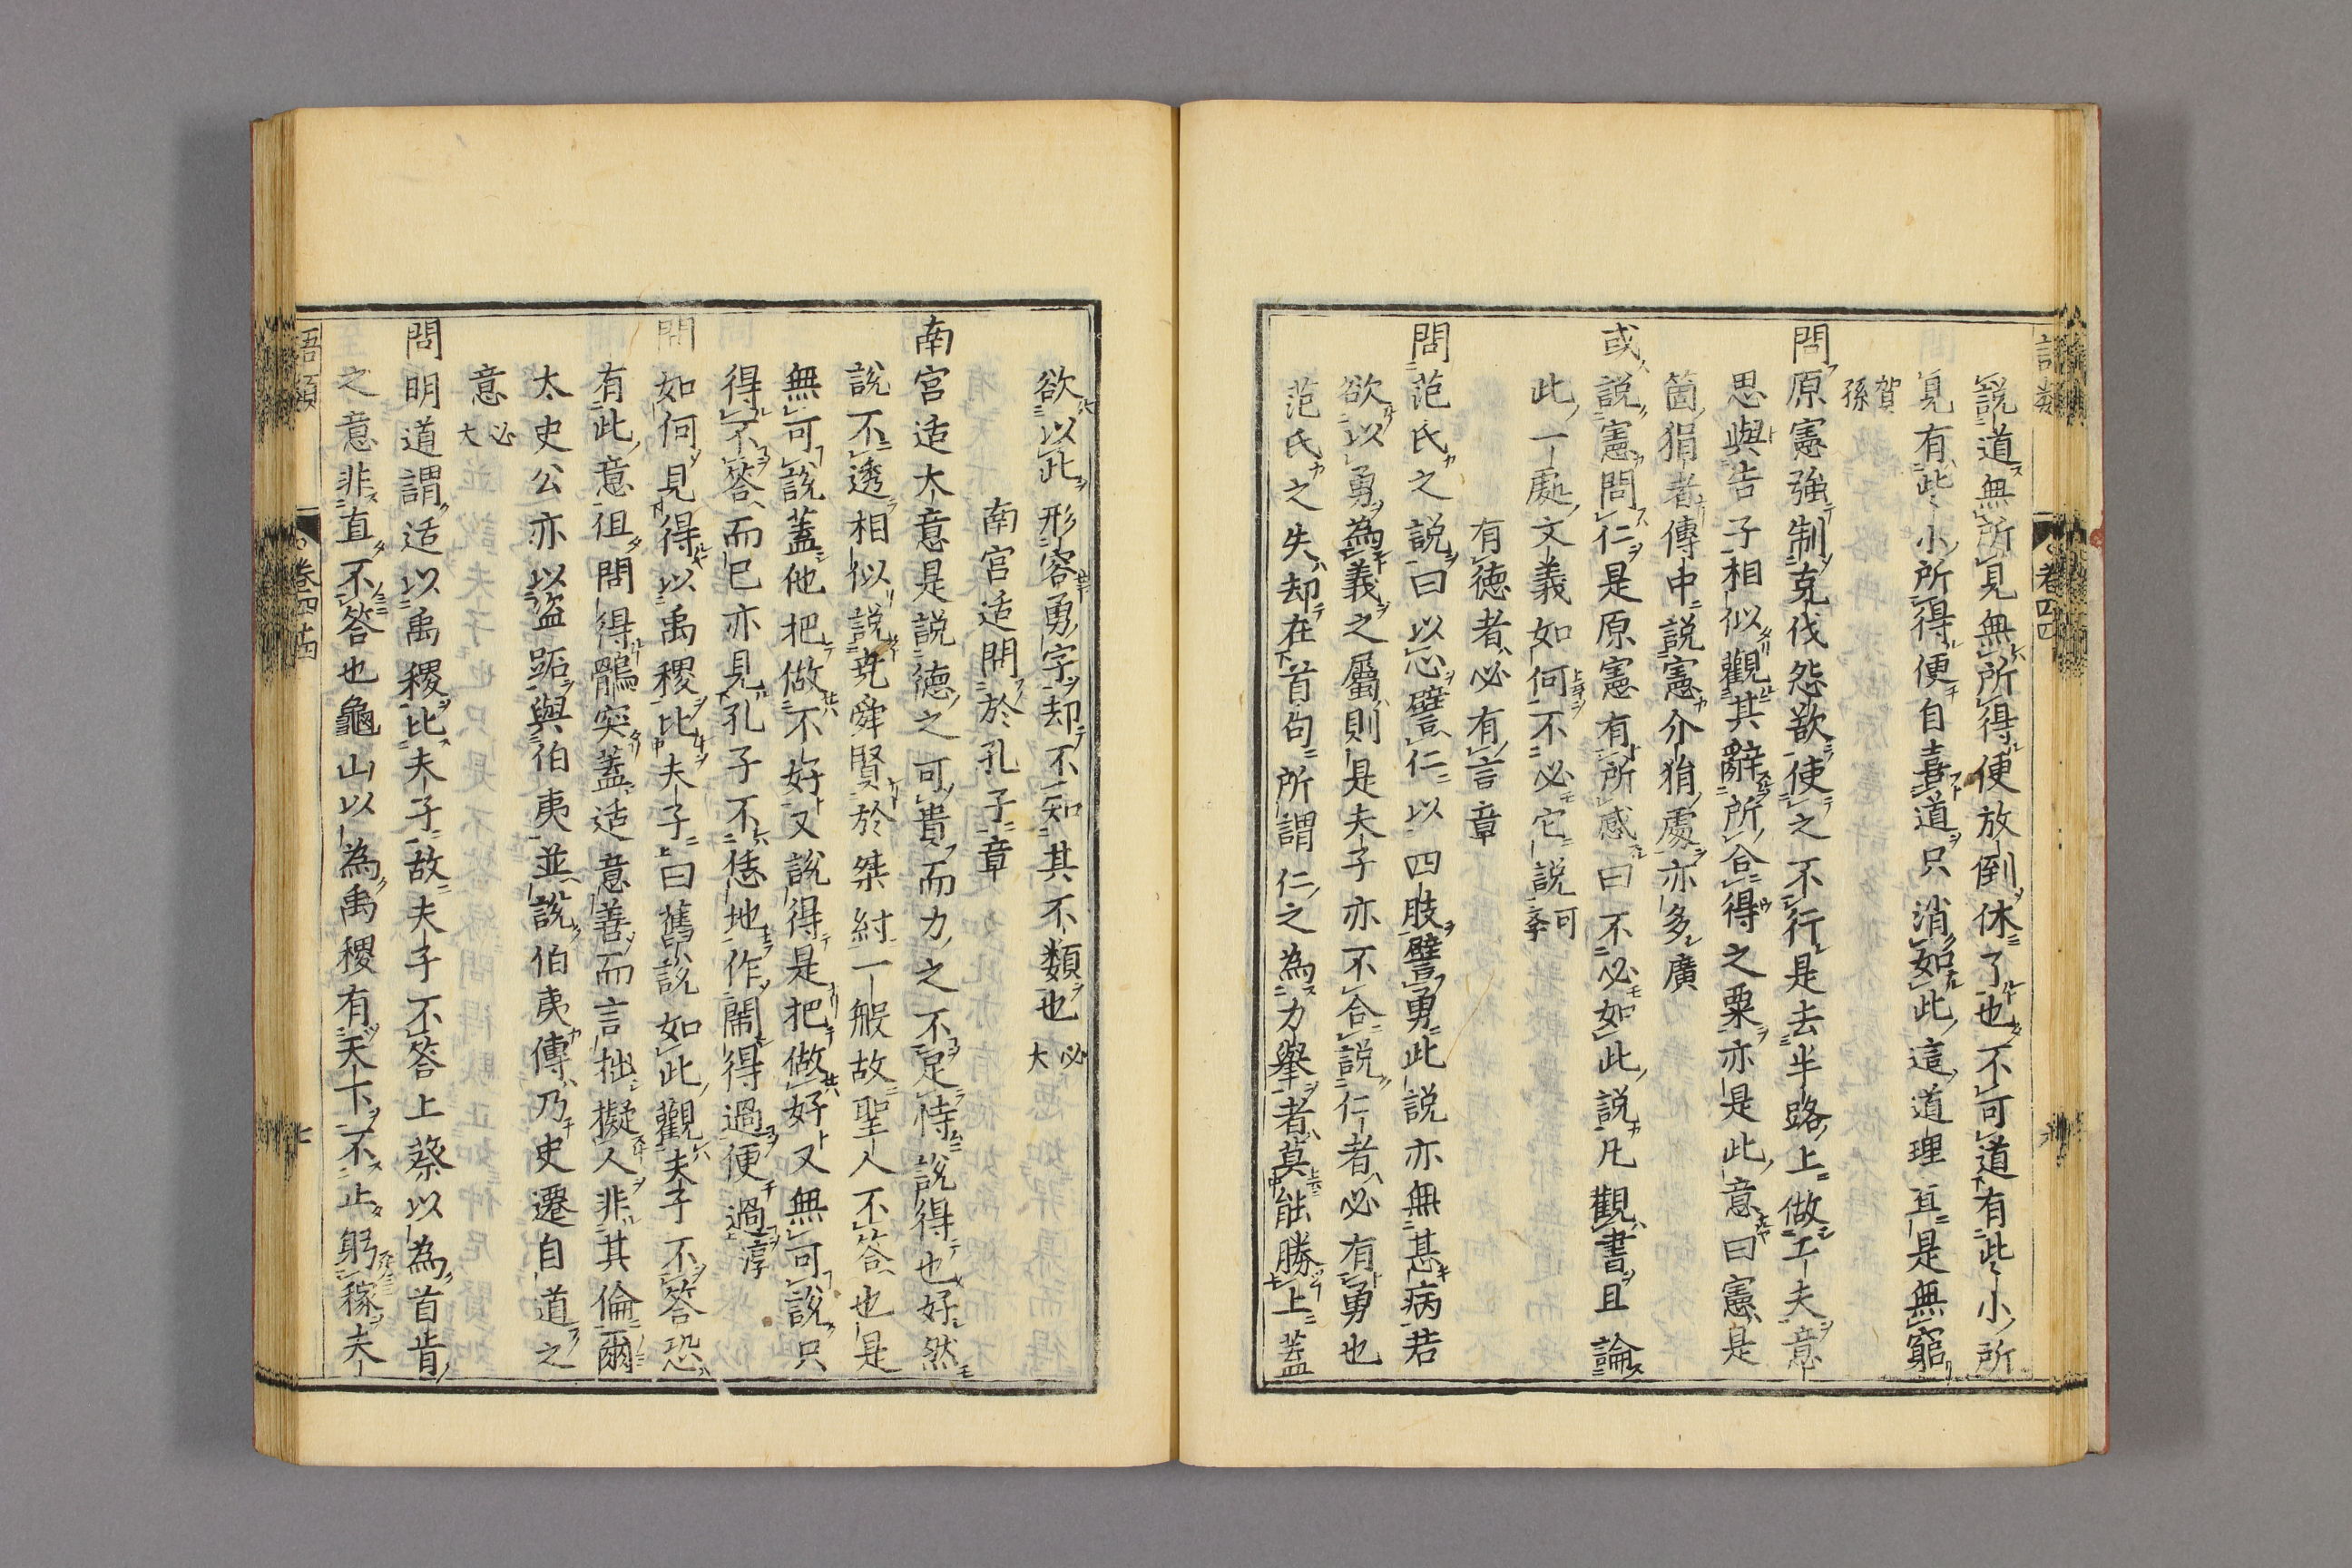 語類
卷四四
說道無所見無所得便放倒休了也不可道有些小所
見有些小所得便自喜道只消如此這道理直是無窮
賀孫
問原憲強制克伐怨欲使之不行是去半路上做工夫意
思與告子相似觀其辭所合得之粟亦是此意曰憲是
箇狷者傳中說憲介狷處亦多廣
或說憲問仁是原憲有所感曰不必如此說凡觀書且論
此一處文義如何不必它說可學
有德者必有言章
問范氏之說曰以心譬仁以四肢譬勇此說亦無甚病若
欲以勇為義之屬則是夫子亦不合說仁者必有勇也
范氏之失却在首句所謂仁之為力舉者莫能勝上蓋
欲以此形容勇字却不知其不類也必大
南宮适問於孔子章
南宮适大意是說德之可貴而力之不足恃說得也好然
說不透相似說堯舜賢於桀紂一般故聖人不答也是
無可說蓋他把做不好又說得是把做好又無可說只
得不答而已亦見孔子不恁地作鬧得過便過淳
問如何見得以禹稷比夫子曰舊說如此觀夫子不答恐
有此意徂問得鶻突蓋适意善而言拙擬人非其倫爾
太史公亦以盜跖與伯夷並說伯夷傳乃史遷自道之
意必大
問明道謂适以禹稷比夫子故夫子不答上蔡以為首肯
之意非直不答也龜山以為禹稷有天下不止躬稼夫
語類
卷四十四
七